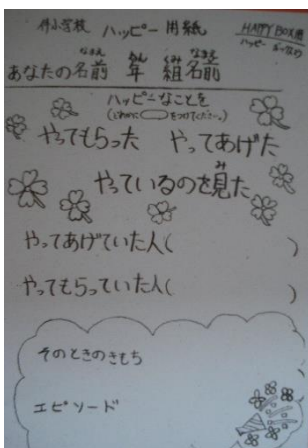 小学校 ハッピー用紙 HAPPY BOX用
ハッピー
あなたの名前 年 組 名前
なまえ ねん くみ なまえ
ハッピーなことを
(どれかに○をつけてください。)
やってもらった やってあげた
み
やっているのを見た
やってあげていた人( )
やってもらっていた人( )
そのときのきもち
エピソード